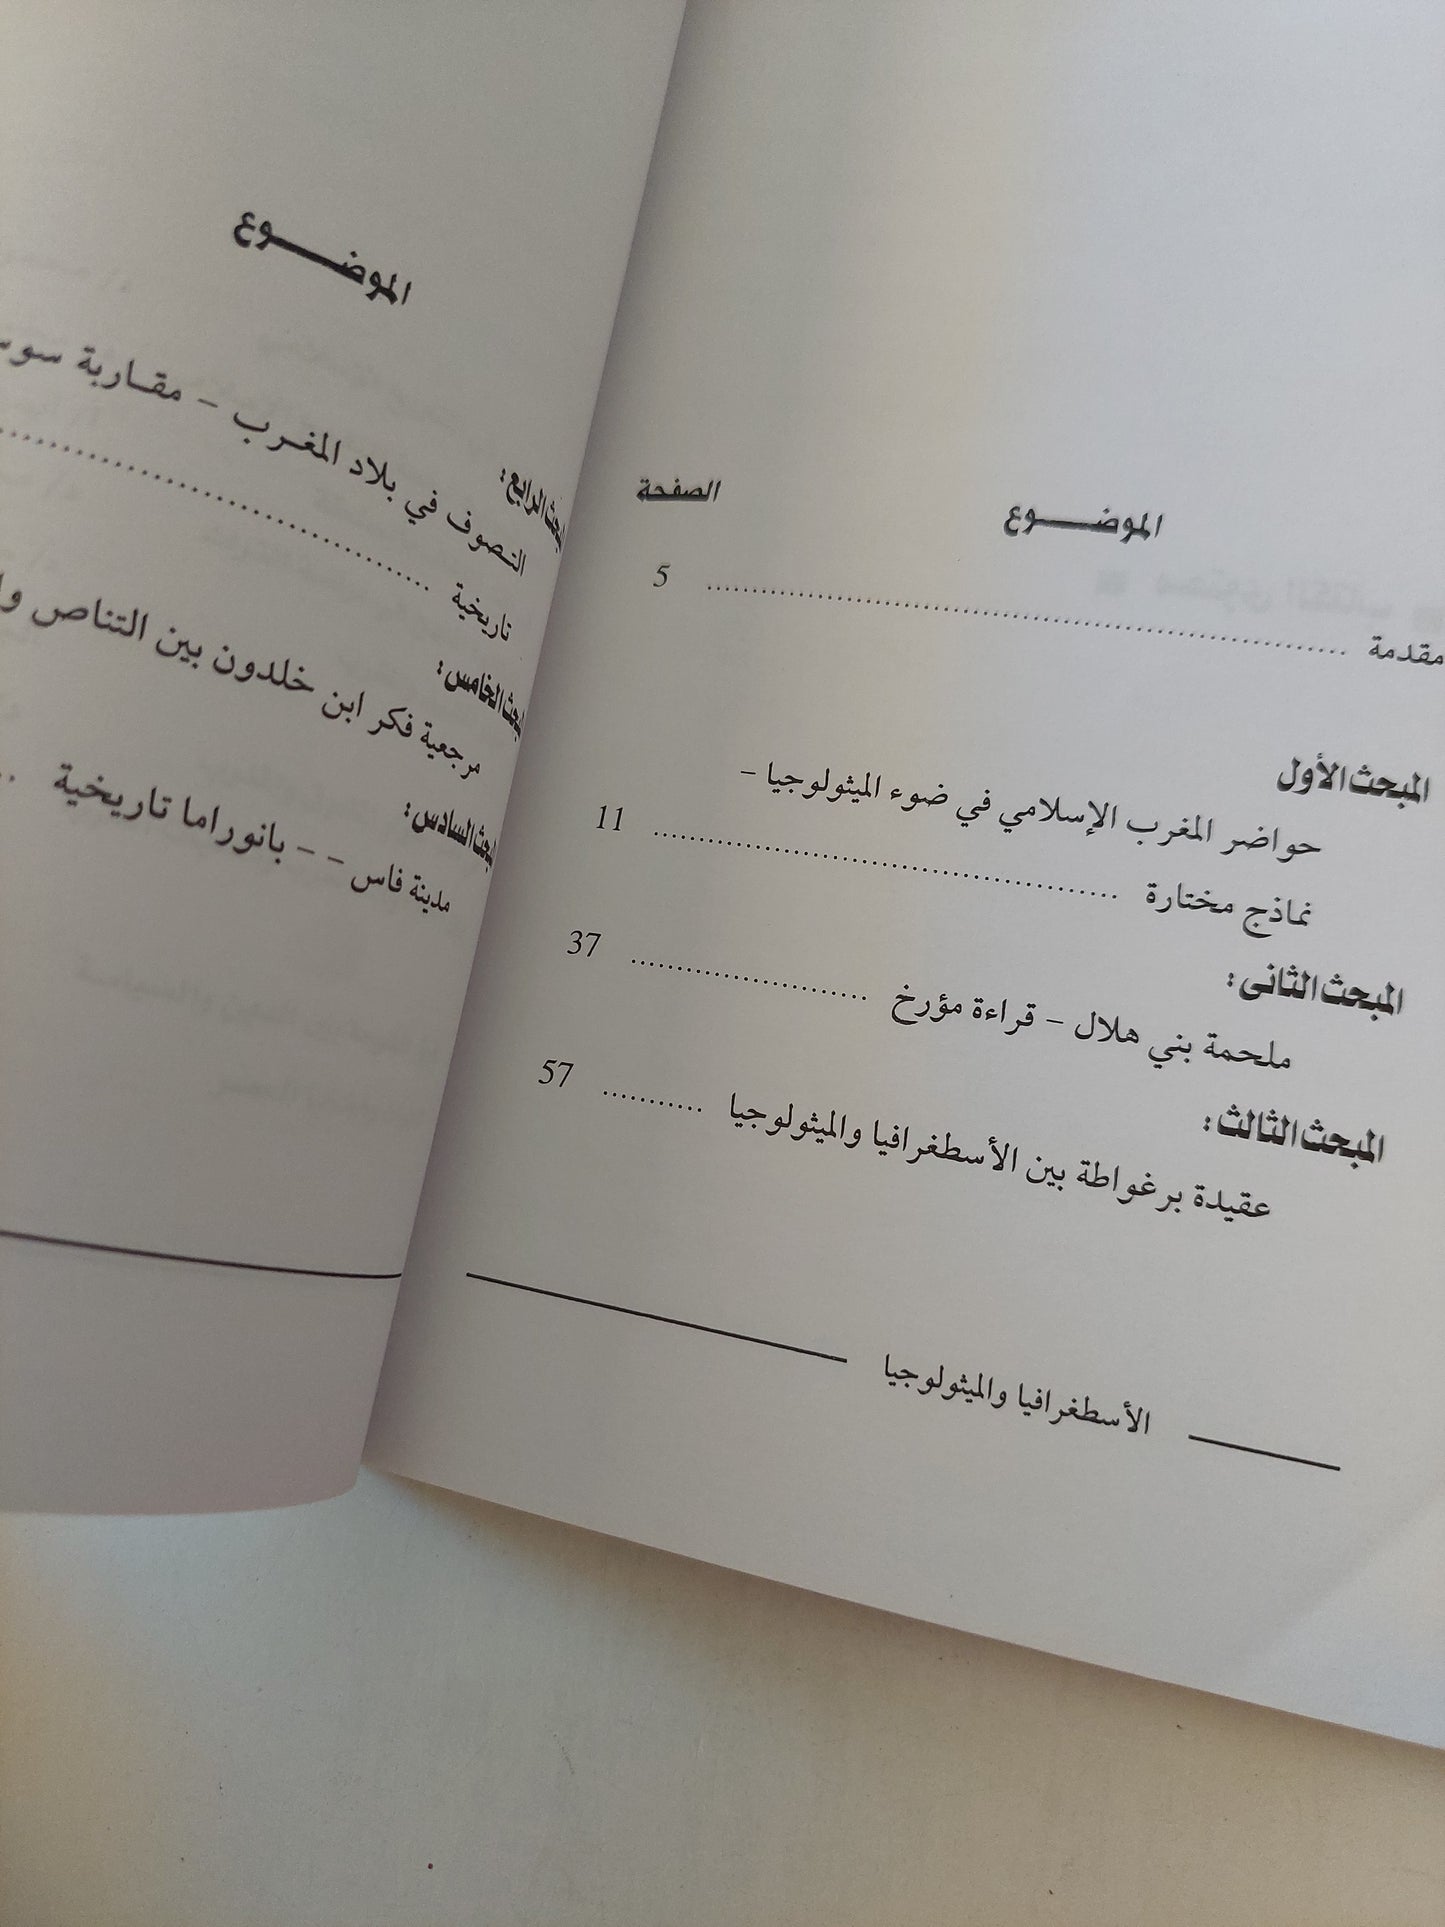 الموضـــــوع الصفحة
مقدمة ........................................................................ 5
المبحث الأول
حواضر المغرب الإسلامي في ضوء الميثولوجيا -
نماذج مختارة .................................................... 11
المبحث الثانى:
ملحمة بني هلال - قراءة مؤرخ .......................... 37
المبحث الثالث:
عقيدة برغواطة بين الأسطغرافيا والميثولوجيا ........... 57
الأسطغرافيا والميثولوجيا
الموضـــــوع
الرابع:
التـصوف في بلاد المغـرب - مقـاربة
تاريخية ..................................................
الخامس:
مرجعية فكر ابن خلدون بين التناص
السادس:
مدينة فاس - - بانوراما تاريخية ..